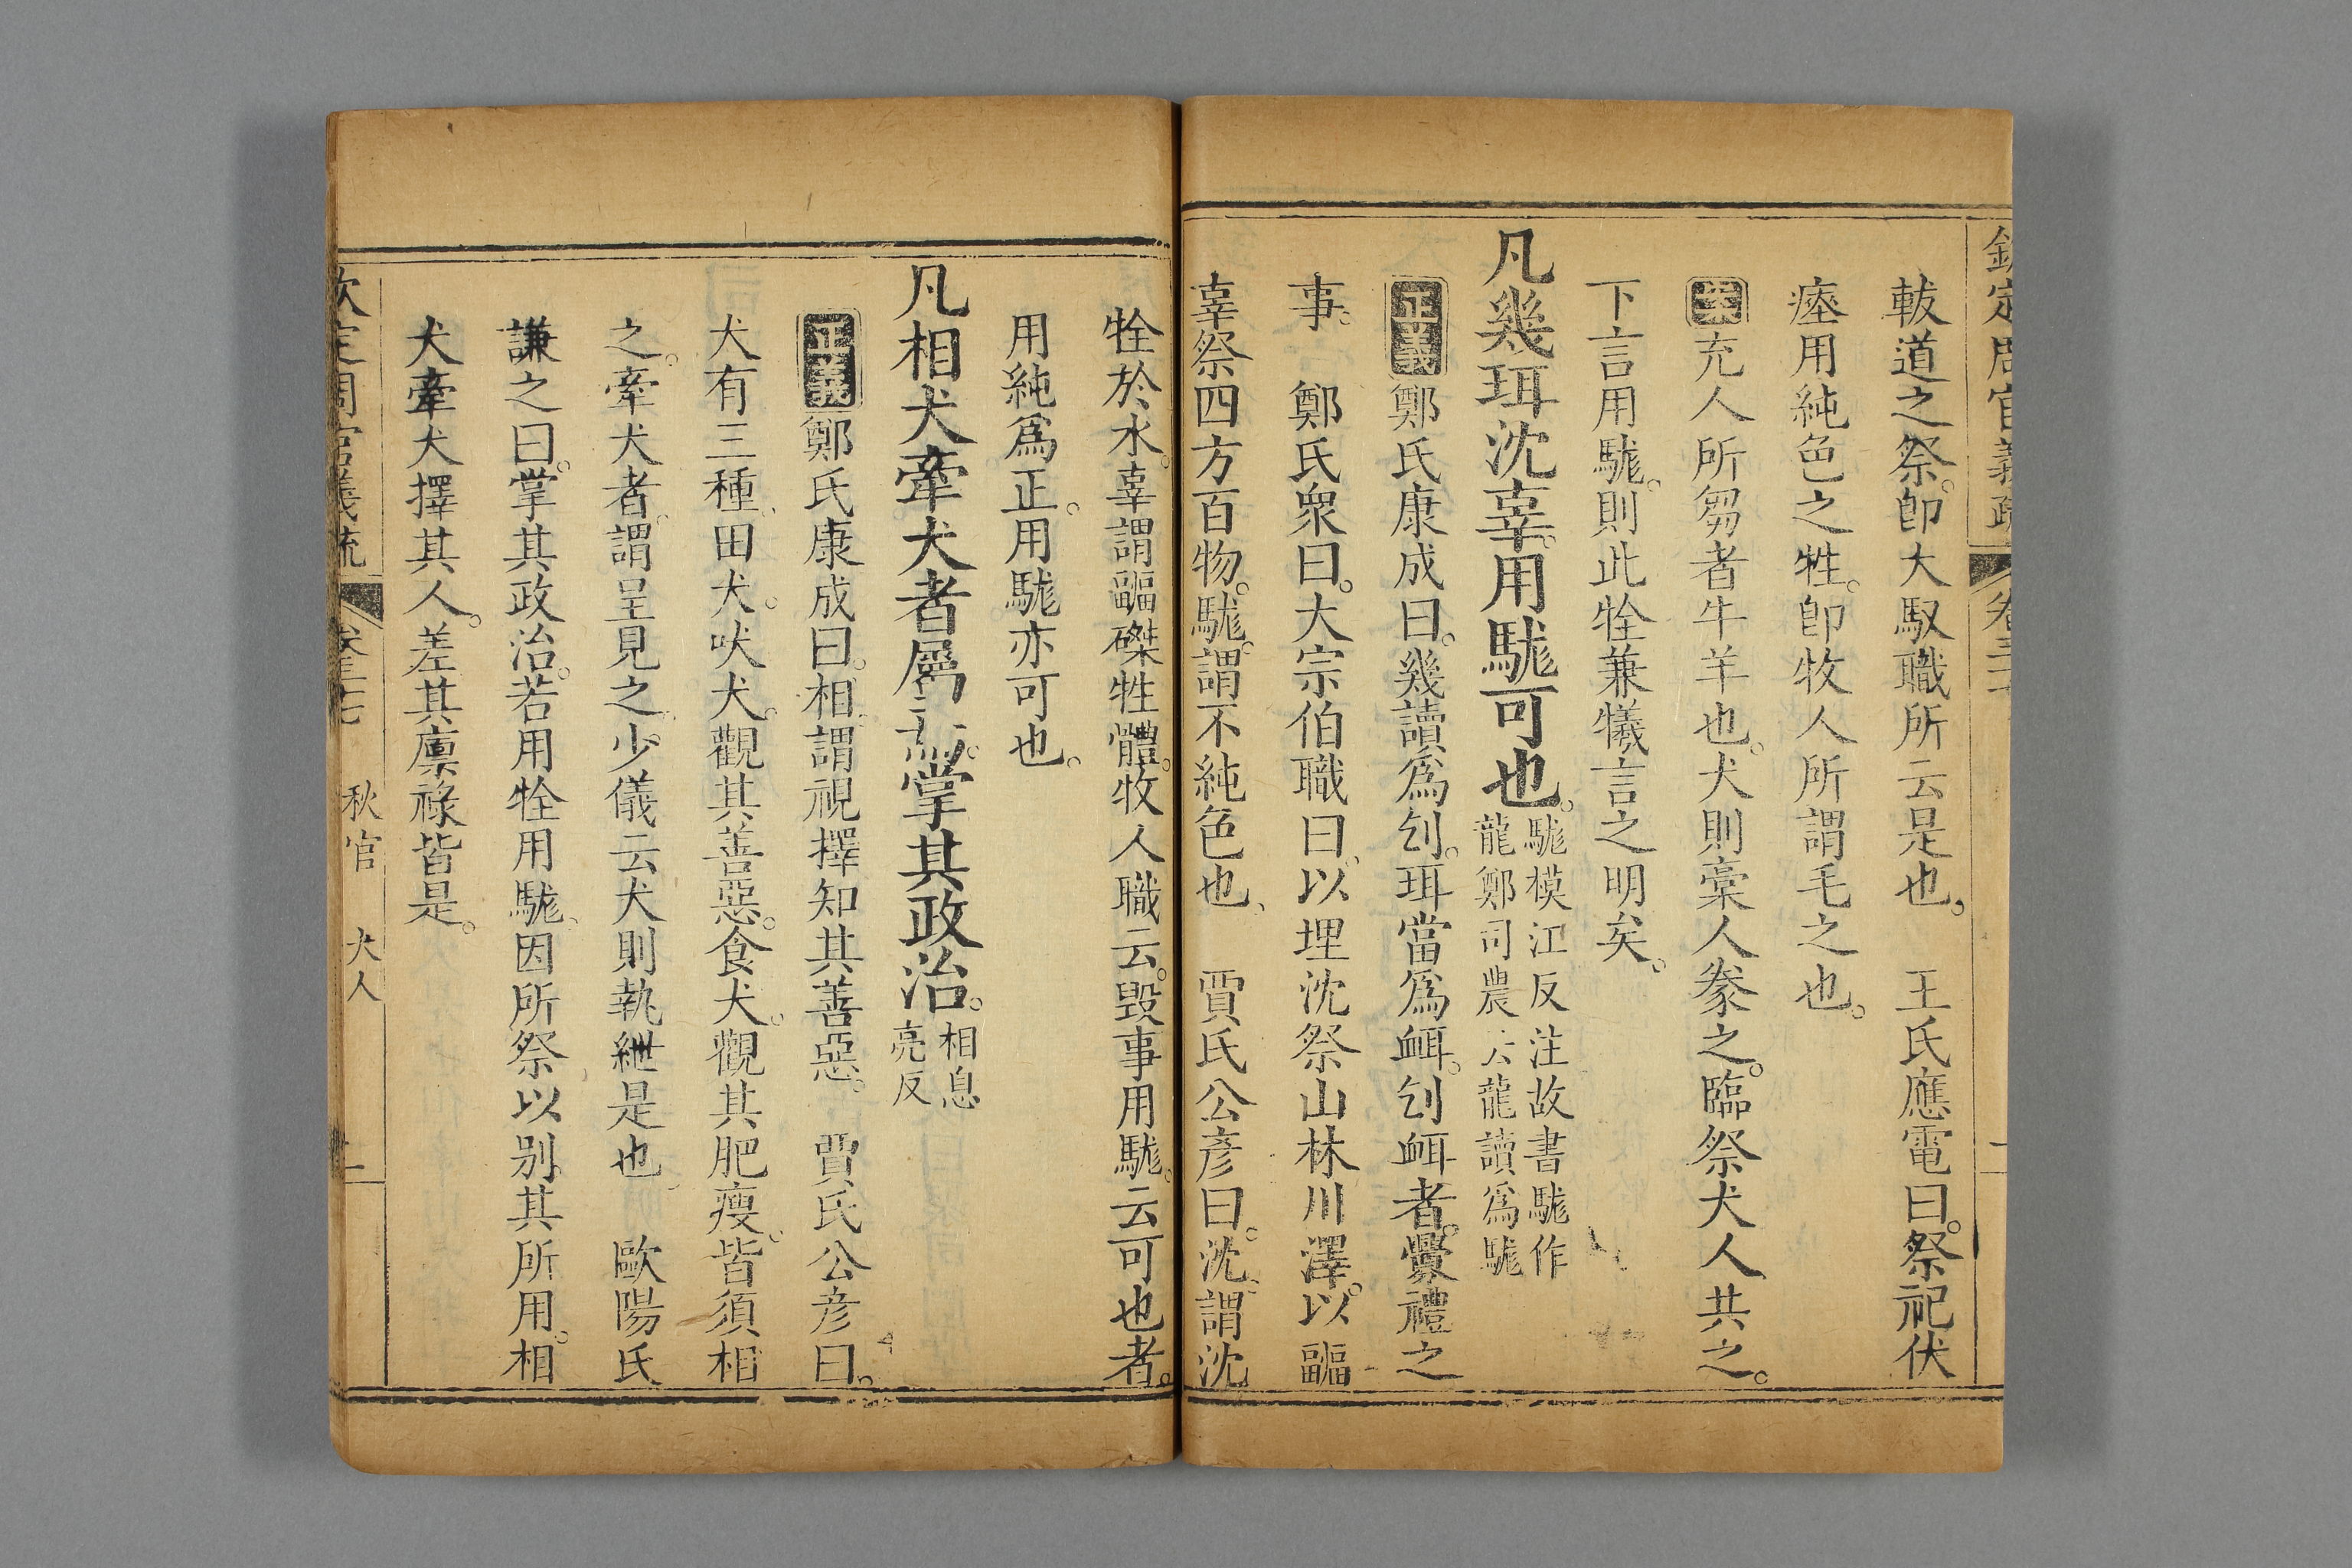 欽定周官義疏 卷三十
軷道之祭。卽大馭職所云是也。 王氏應電曰。祭祀伏
瘞用純色之牲。卽牧人所謂毛之也。
案充人所芻者牛羊也。犬則槀人豢之。臨祭犬人共之。
下言用駹。則此牷兼犧言之明矣。
凡幾珥沈辜。用駹可也。駹模江反注故書駹作
龍鄭司農云龍讀爲駹
正義鄭氏康成曰。幾讀爲刉。珥當爲衈。刉衈者。釁禮之
事。 鄭氏衆曰。大宗伯職曰。以埋沈祭山林川澤。以疈
辜祭四方百物。駹。謂不純色也、 賈氏公彥曰。沈、謂沈
牷於水。辜謂疈磔牲體。牧人職云。毀事用駹。云可也者。
用純爲正。用駹亦可也。
凡相犬牽犬者屬焉。掌其政治。相息
亮反
正義鄭氏康成曰。相、謂視擇知其善惡。 賈氏公彥曰。
犬有三種、田犬。吠犬。觀其善惡。食犬。觀其肥瘦。皆須相
之。牽犬者、謂呈見之、少儀云犬則執緤是也、 歐陽氏
謙之曰。掌其政治。若用牷用駹、因所祭以別其所用。相
犬牽犬擇其人。差其廩祿皆是。
欽定周官義疏 卷三十七 秋官 犬人